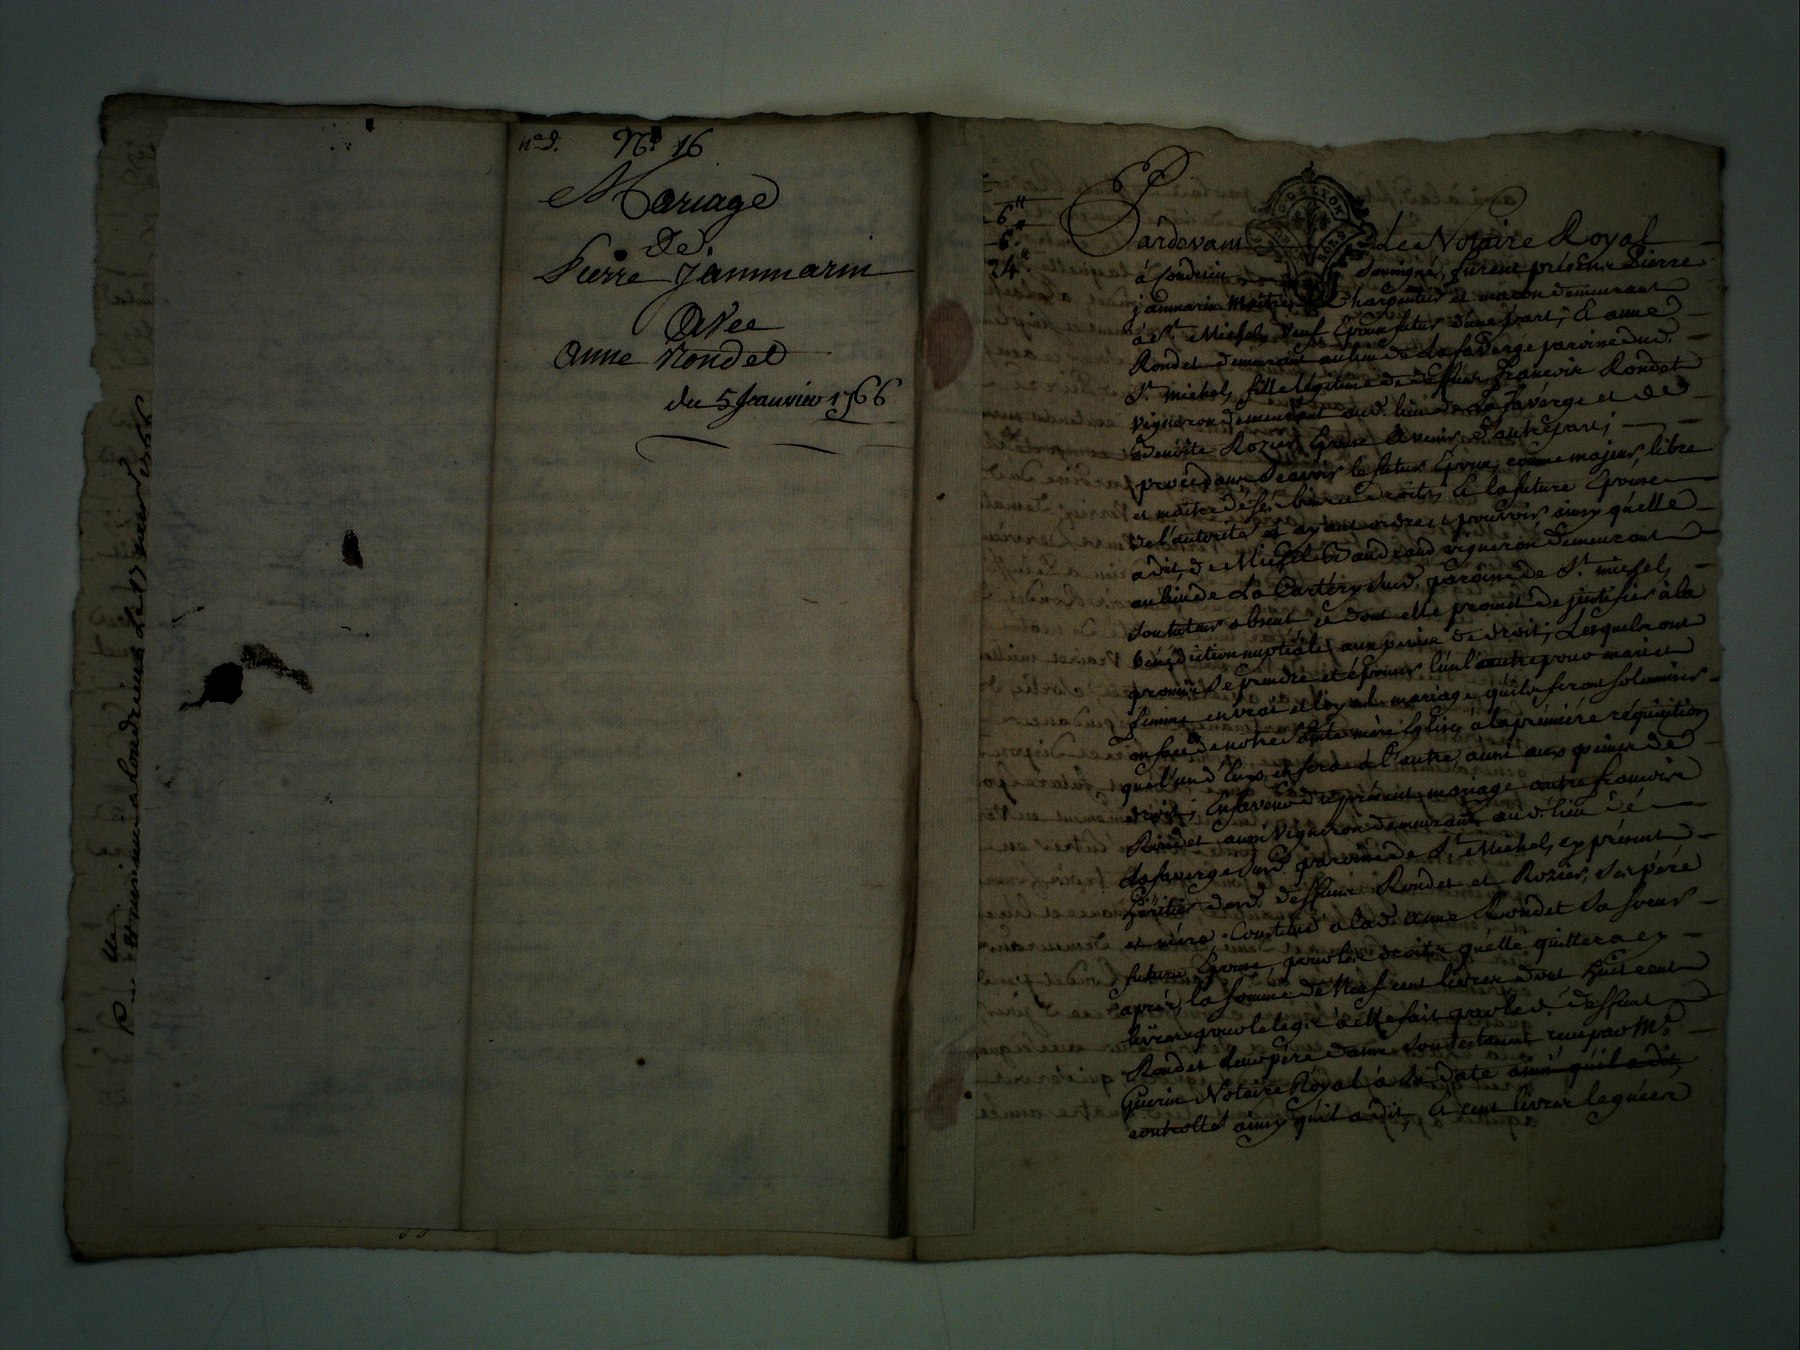 N.° 16
Mariage
De.
Pierre Jammarin
Avec
Anne Rondet
du 5 Janvier 1766
6
6
24
Pardevant Le Notaire Royal
à Condrieu soussigné, furent présens Pierre
jammarin Maitre Charpentier et maçon demeurant
à St. Michel, veuf Epoux futur d'une part; & anne
Rondet demeurant au lieu de Lafaverge paroisse dud.
St. michel, fille légitime de deffunt françois Rondet
vigneron demeurant aud. lieu de Lafaverge et de
Benoite Rozier, Epouse à venir d'autre part;
procédans sçavoir le futur Epoux, comme majeur, libre
et maitre de ses biens et droits, & la future Epouse
de l'autorité et ayant ordre et pouvoir ainsy qu'elle
a dit, de Michel demeurant vigneron
au lieu de La dud. paroisse de St. michel,
son tuteur absent et dont elle promet de justifier à la
bénédiction nuptiale aux peines de droit; Lesquels ont
promis se prendre et épouser l'un l'autre pour mari et
femme en vrai et loyal mariage qu'ils feront solemniser
en face de notre sainte mère Eglise, à la première réquisition
que l'un d'eux en fera à l'autre, aussi aux peines de
droit; En faveur du présent mariage autre françois
Rondet aussi vigneron demeurant aud. lieu de
Lafaverge dud. paroisse de St. Michel, cy présent
héritier desd. deffunts Rondet et Rozier, ses père
et mère, Constitue à lad. anne Rondet sa soeur
future Epouse, pour les droits qu'elle quittera cy
après, la somme de Neuf cent livres dont huit cent
livres pour le legs à elle fait par led. deffunt
Rondet leur père dans son testament reçu par Me.
Guerin Notaire Royal à sa date ainsi qu'il a dit,
controllé ainsy qu'il a dit, & cent livres